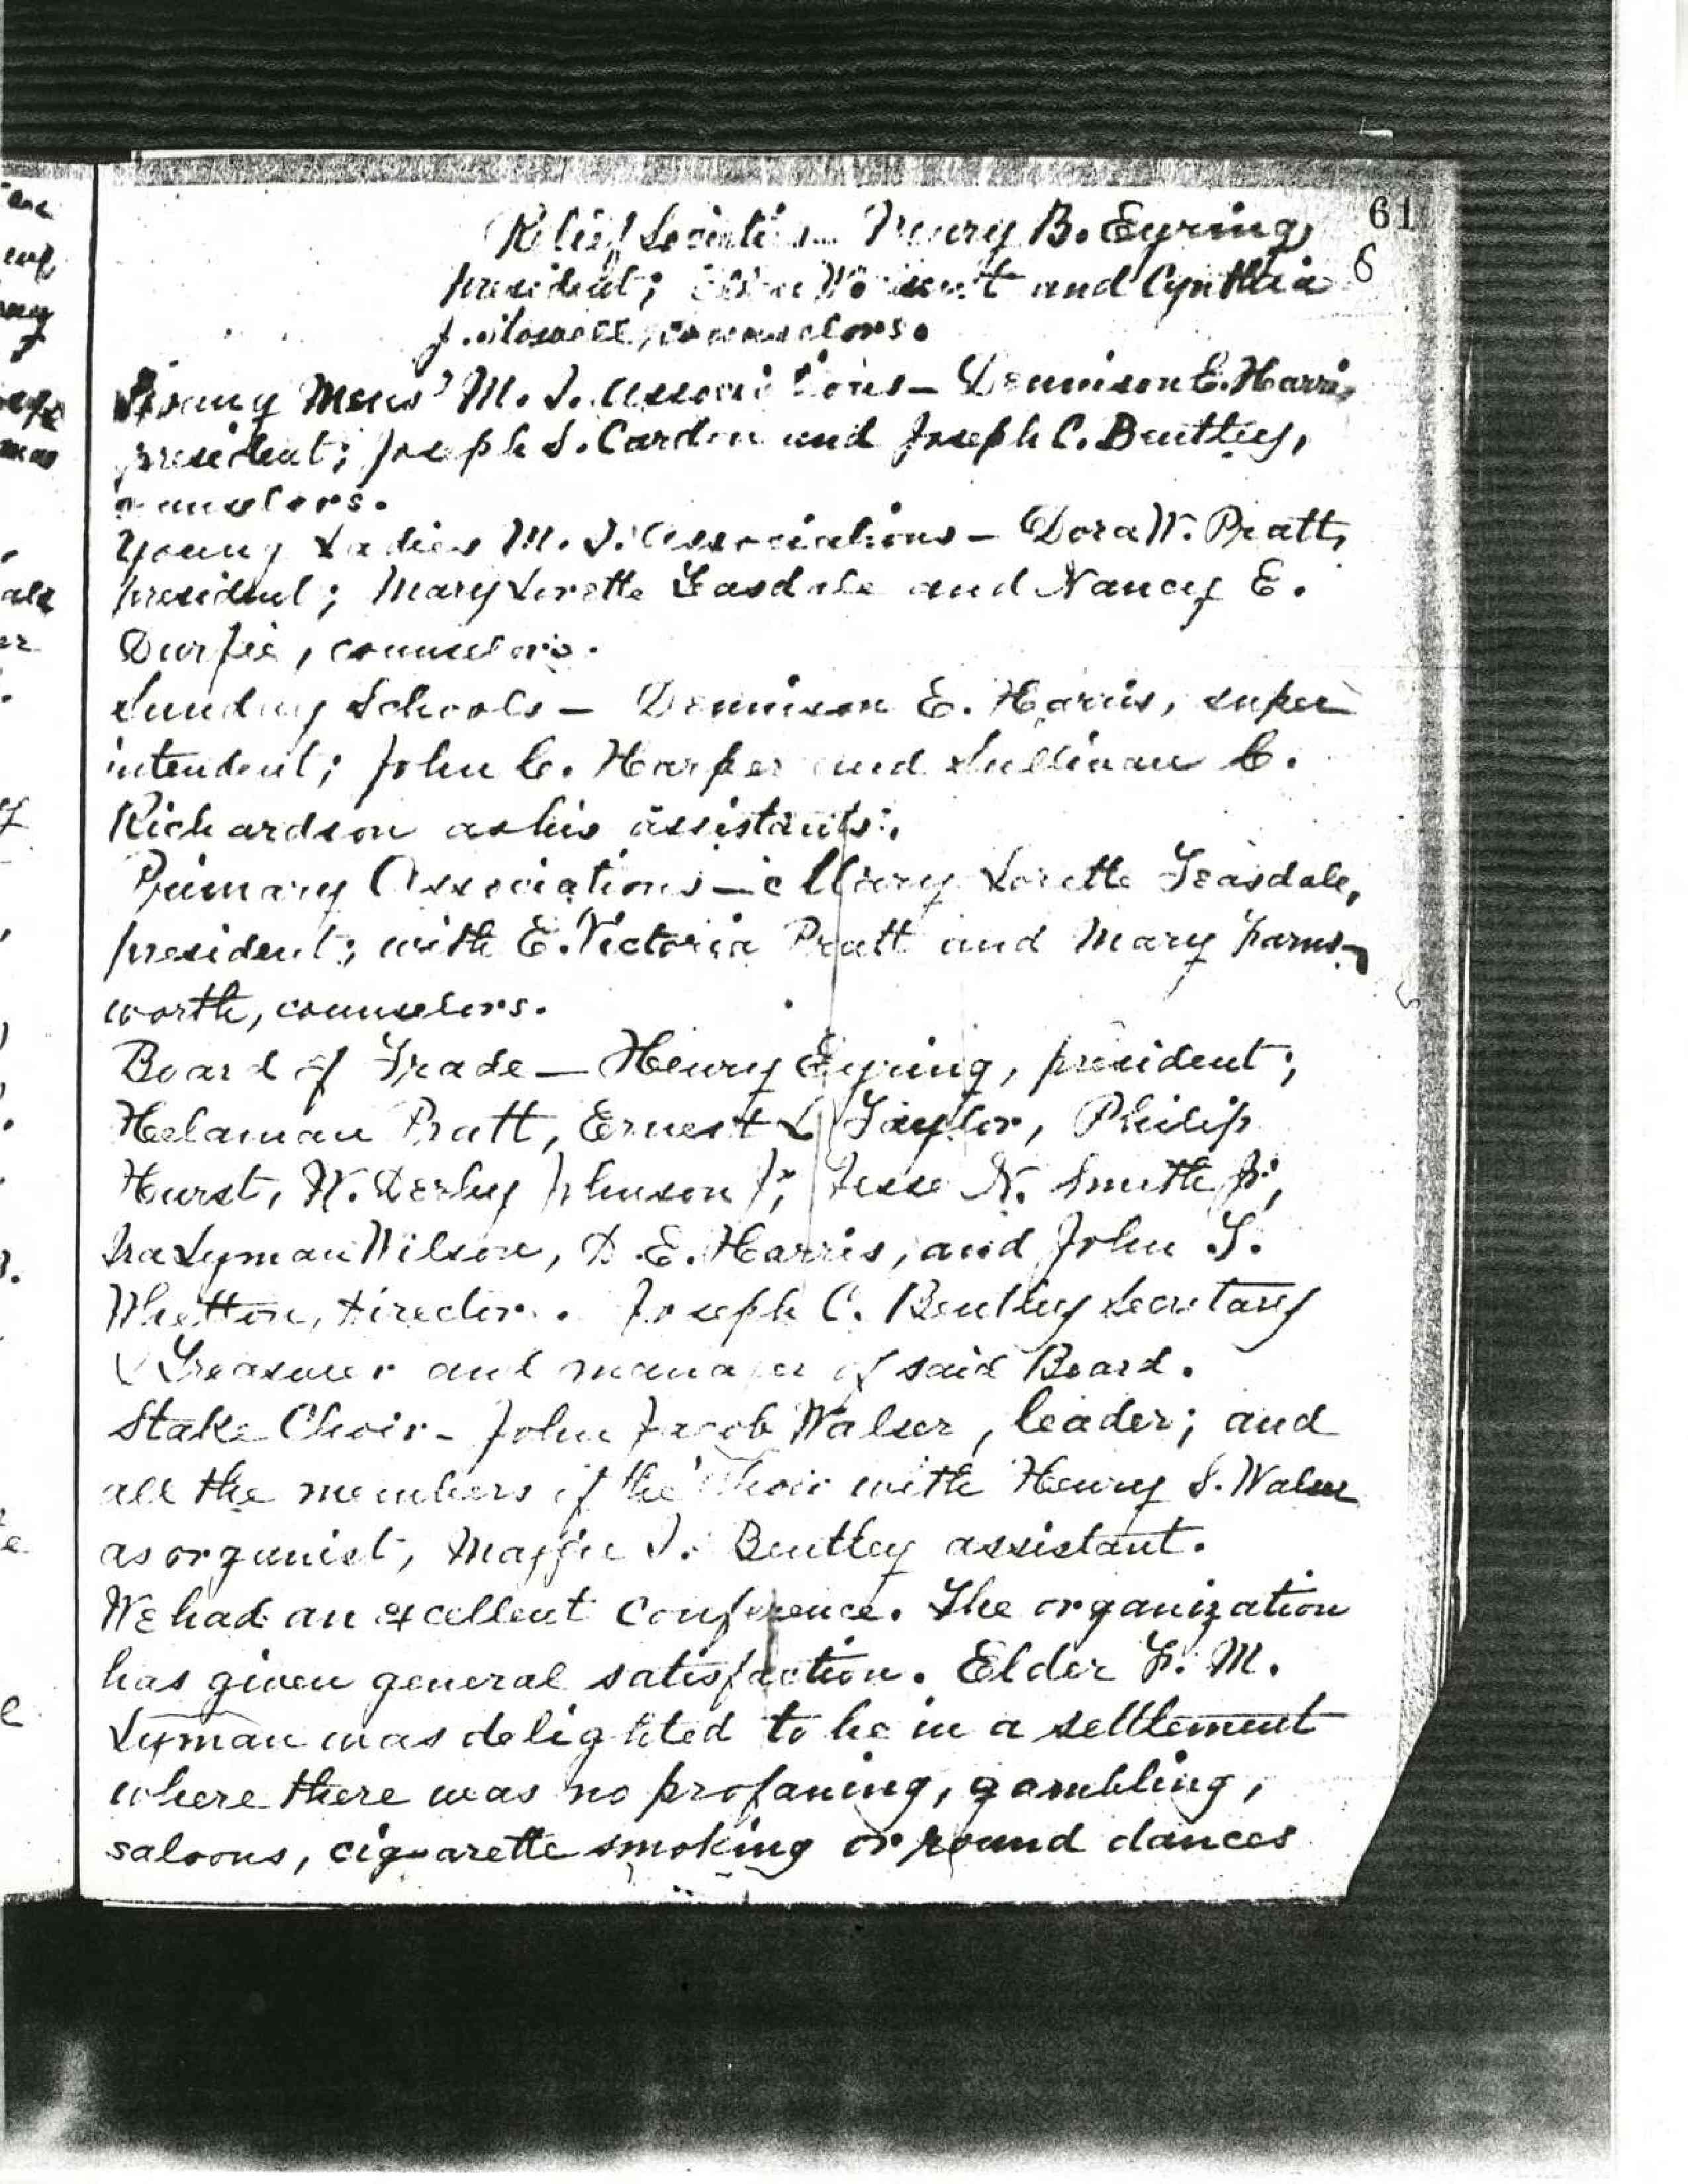 61
6
Relief Societies — Mary B. Eyring,
president; and Cynthia
J. counselors.
Young Mens' M. I. Associations — Dennison E. Harris,
president; Joseph S. Cardon and Joseph C. Bentley,
counselors.
Young Ladies M. I. Associations — Dora W. Pratt,
president; Mary Lorette Teasdale and Nancy E.
Durfie, counselors.
Sunday Schools — Dennison E. Harris, super
intendent; John C. Harper and Sullivan C.
Richardson as his assistants.
Primary Associations — Mary Lorette Teasdale,
president; with E. Victoria Pratt and Mary Farns-
worth, counselors.
Board of Trade — Henry Eyring, president;
Helaman Pratt, Ernest L Taylor, Philip
Hurst, W. Derby Johnson Jr; Jesse N. Smith Jr;
Ira Lyman Wilson, D. E. Harris, and John T.
Whetten, directors. Joseph C. Bentley Secretary
& Treasurer and manager of said Board.
Stake Choir — John Jacob Walser, leader; and
all the members of the Choir with Henry S. Walser
as organist, Maggie I. Bentley assistant.
We had an excellent conference. The organization
has given general satisfaction. Elder F. M.
Lyman was delighted to be in a settlement
where there was no profaning, gambling,
saloons, cigarette smoking or round dances